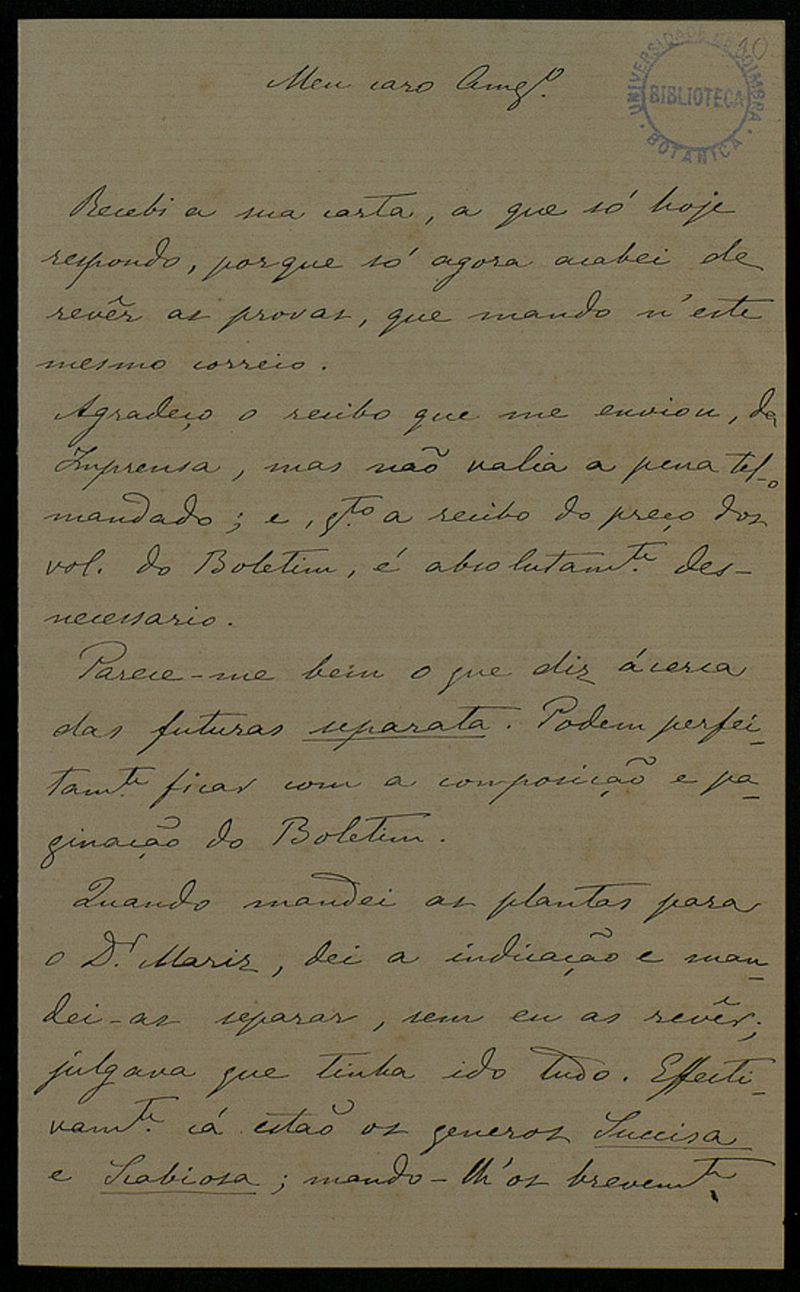 10
UNIVERSIDADE DE COIMBRA
BIBLIOTECA
BOTANICA
Meu caro Amgº.
Recebi a sua carta, a que só hoje
respondo, porque só agora acabei de
revêr as provas, que mando n'este
mesmo correio.
Agradeço o recibo que me enviou, da
Imprensa, mas não valia a pena tel-o
mandado; e, qto a recibo do preço dos
vol. do Boletim, é absolutamte. des-
necessario.
Parece-me bem o que diz ácerca
das futuras separata. Podem perfei-
tamte. ficar com a composição e pa-
ginação do Boletim.
Quando mandei as plantas para
o Dr. Mariz, dei a indicação e man-
dei-as separar, sem eu as revêr;
julgava que tinha ido tudo. Effecti-
vamte. cá estão os generos Succisa
e Scabiosa; mando-lh'os brevemte.